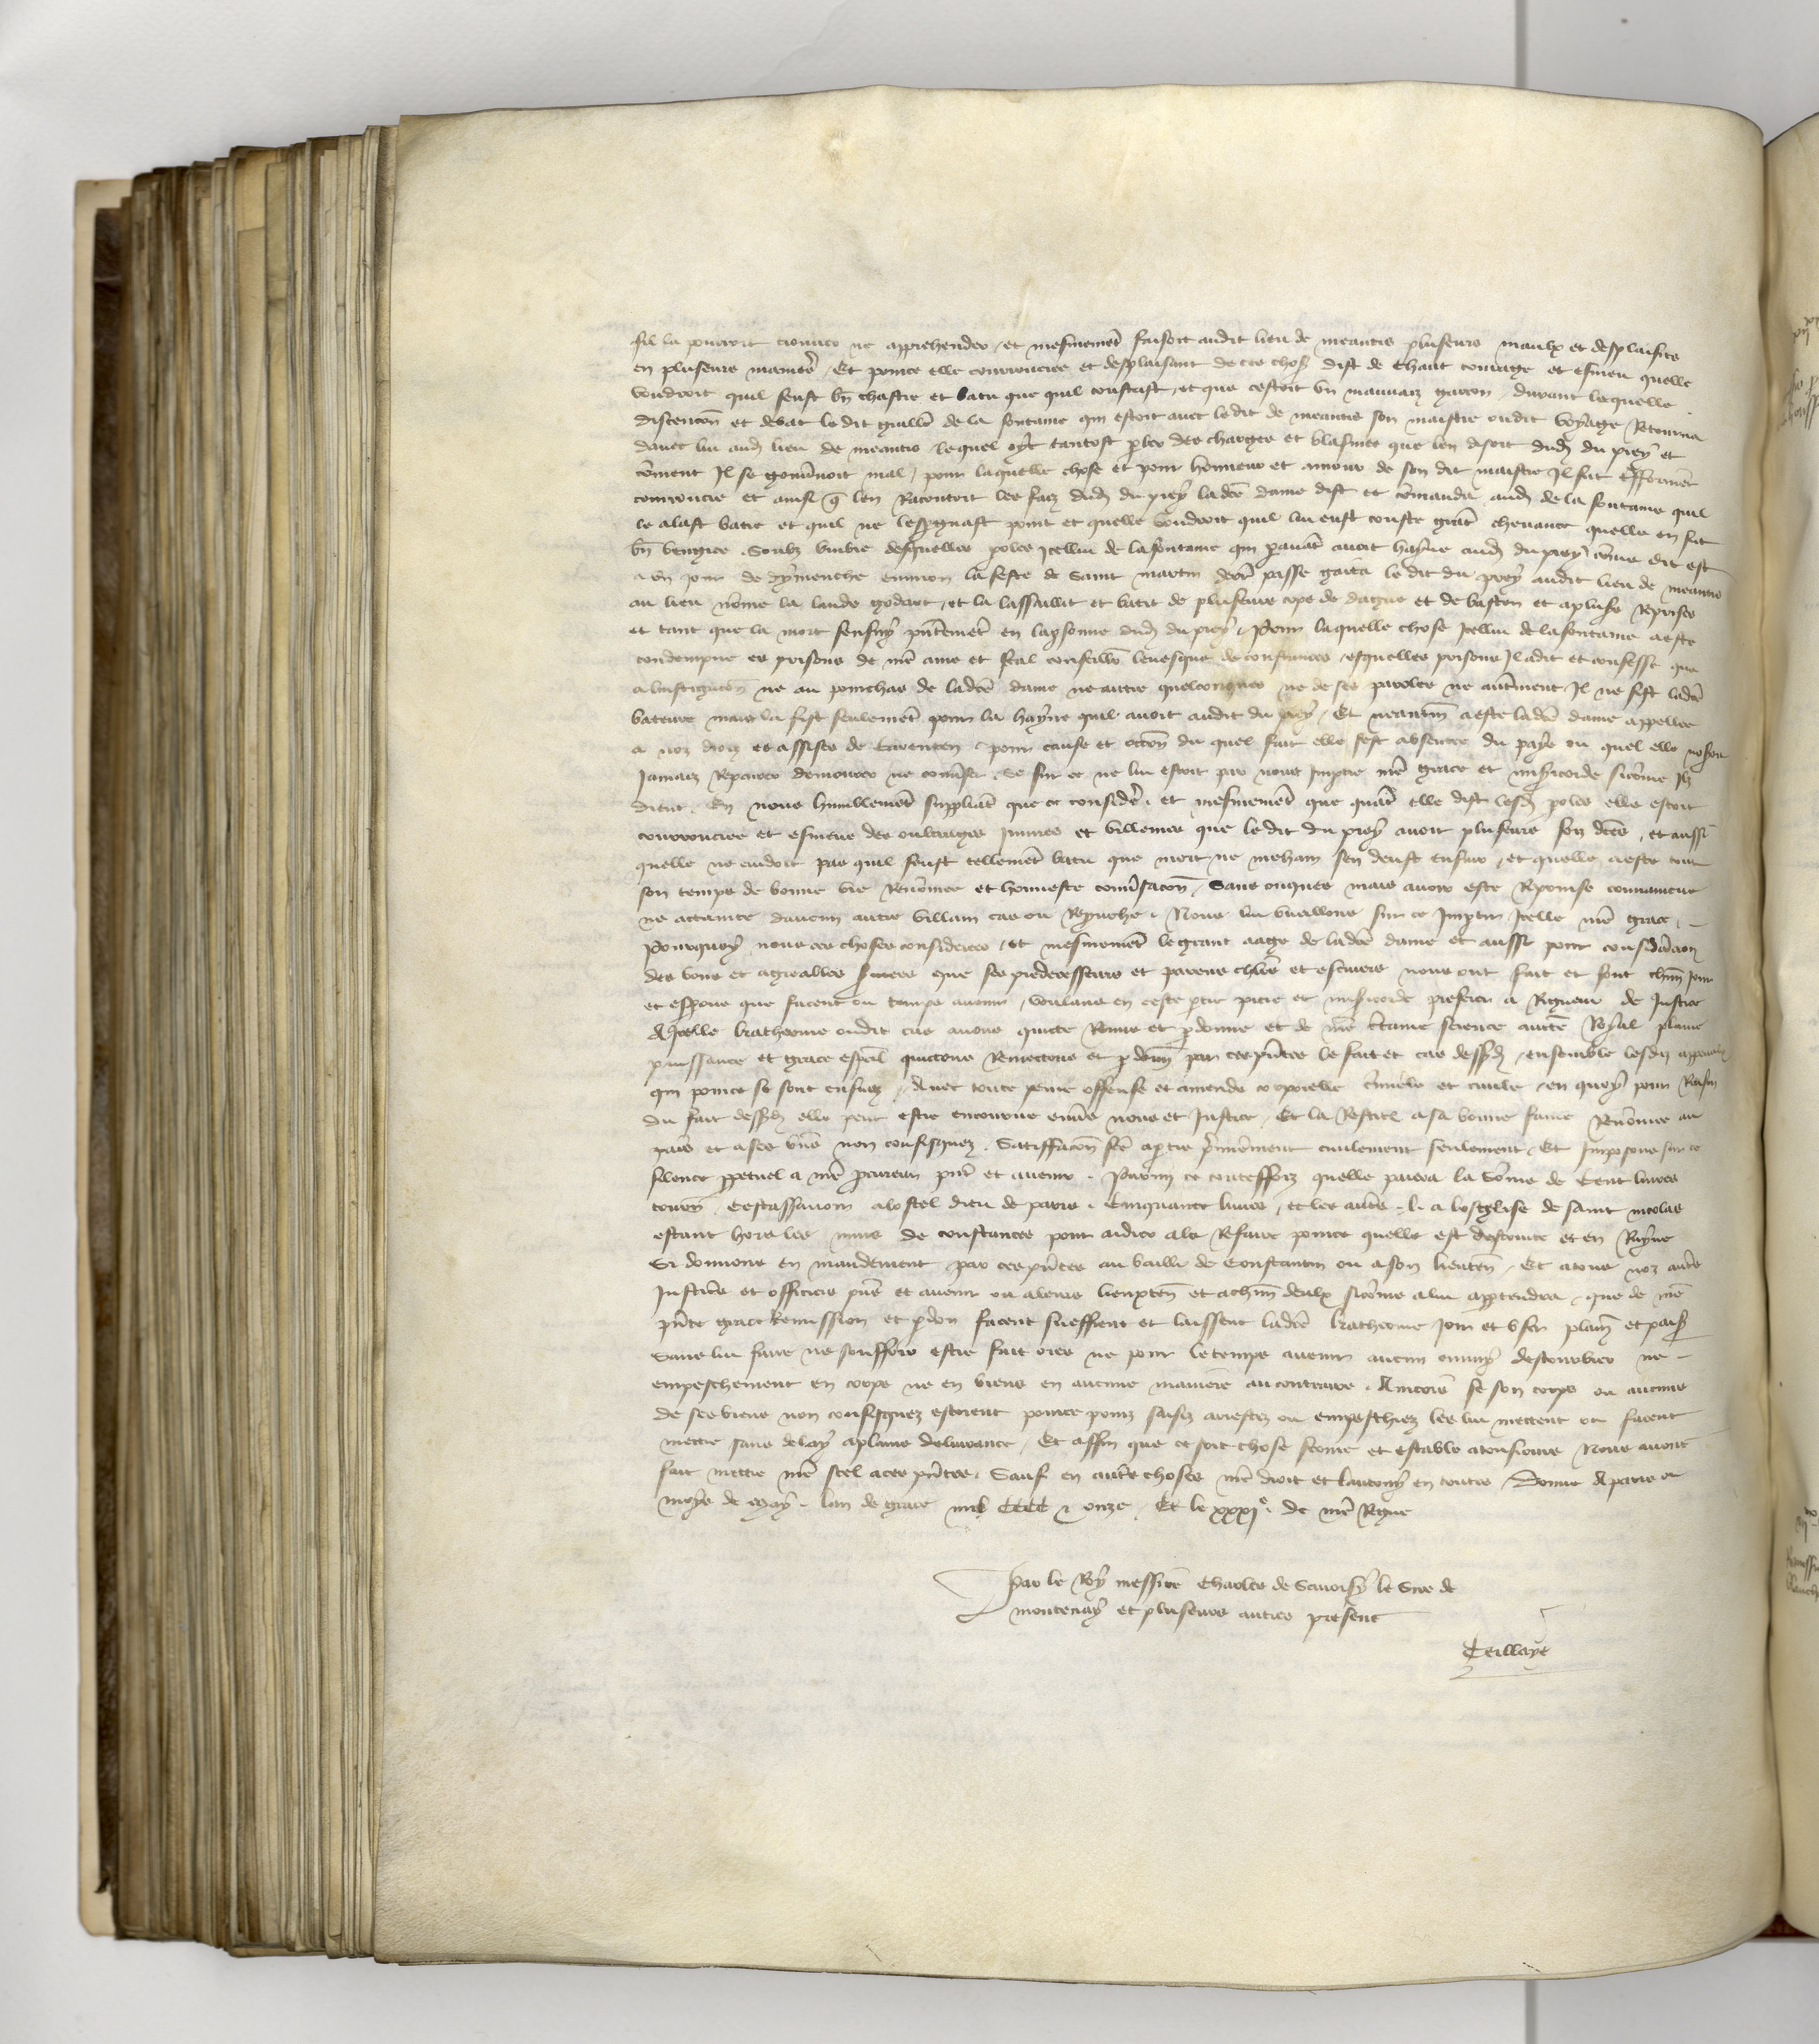 sil la pourroit trouver ne apprehender et mesmemēt faisoit audit lieu de meautis pluseurs maulx et desplaisirs
en pluseurs manier̄ Et pource elle courroucee et desplaisant de ces chos dist de chaut courage et esmeu quelle
voudroit quil feust bn̄ chastie et batu que quil coustast et que cestoit un mauvaiz garcon durant lequelle
discencōn et debat le dit guillē de la fontaine qui estoit avec ledit de meautis son maistre oudit voyage Retourna
davec lui aud lieu de meautis lequel oyt tantost pler des charges et blasmes que len disoit dud du prey et
cōment Il se gouv̄noit mal pour laquelle chose et pour honneur et amour de son dit maistre Il fut
courroucie et ainsi q̄ len Racontoit les faiz dud du prey ladcē dame dist et cōmanda aud de la fontaine quil
le alast batre et quil ne lespgnast point et quelle voudroit quil lui eust couste grāt chevance quelle en fut
bn̄ vengiee Soubz umbre desquelles poles Icellui de lafontaine qui pavāt avoit hayne aud du prey cōme dit est
a un jour de dymenche environ la feste de Saint martin derr̄ passe gaita le dit du prey audit lieu de meautis
au lieu nōme la lande godart et la lassaillit et batit de pluseurs cops de dague et de baston et a plus Reprises
et tant que la mort sensuy pn̄temēt en la psonne dud du prey Pour laquelle chose Icellui de lafontaine a este
condempne es prisons de nr̄e ame et feal conseillr̄ levesque de constances esquelles prisons Il a dit et confesse que
a linstigacōn ne au pourchas de ladcē dame ne autre quelconques ne de ses paroles ne autr̄ment Il ne fist ladcē
bateure mais la fist seulemēt pour la hayne quil avoit audit du prey Et neantm̄ a este ladcē dame appellee
a noz droiz et assises de Carenten pour cause et occōn du quel fait elle sest absentee du pays ou quel elle noseroit
Jamaiz Reparer demourer ne convser se sur ce ne lui estoit par nous Impartie nr̄e grace et misicorde sicōme Ilz
dient En nous humblemēt suppliāt que ce consider̄ et mesmemēt que quāt elle dist lesd poles elle estoit
courroucee et esmeue des oultrages Injures et villenies que le dit du prey avoit pluseurs foiz dcēs et aussi
quelle ne cuidoit pas quil feust tellemēt batu que mort ne mehain sen deust ensuir et quelle a este tout
son temps de bonne vie Renōmee et honneste convsacōn Sans onques mais avoir este Reprouvee convaincue
ne actainte daucun autre villain cas ou Reprouche Nous lui vueillons sur ce Imptir Icelle nr̄e grace
Pourquoy nous ces choses considerees et mesmemēt le grant aage de ladcē dame et aussi pour considāon
des bons et agreables s̄vices que ses predecesseurs et parens chl̄rs et escuiers nous ont fait et font chūn Jour
et espons que facent ou temps avenir voulans en ceste ptie pitie et misicorde preferer a Rigueur de Justice
A Icelle Katherine oudit cas avons quicte Remis et pdonne et de nr̄e ctaine science auctē Royal plaine
puissance et grace espēal quictons Remectons et pdōn par ces pn̄tes le fait et cas dessd ensemble lesdiz appeaulx
qui pource se sont ensuiz Avec toute peine offense et amende corporelle criminelle et civile en quoy pour Raison
du fait dessd elle peut estre encourue envs nous et Justice Et la Restitū a sa bonne fame Renōmee au
pais et a ses bn̄s non confisquez Satiffacōn fcē a ptie premierement civilement seulement Et Imposons sur ce
silence ppetuel a nr̄e procureur pn̄t et avenir Parmi ce toutesfoiz quelle paiera la sōme de Cent livres
tourn̄ Cestassavoir a lostel dieu de paris Cinquante livres et les autr̄s .l. a leglise de saint nicolas
estant hors les murs de constances pour aidier a la Refaire pource quelle est destruite et en Ruyne
Si donnons en mandement par ces pn̄tes au bailli de Constantin ou a son lieuten̄ Et a tous noz autr̄s
Justiciers et officiers pn̄s et avenir ou a leurs lieuxten̄ et a chūn deulx sicōme a lui apptendra que de nr̄e
pn̄te grace Remission et pdon facent sueffrent et laissent ladcē Katherine Jouir et user plain̄ et paisib
Sans lui faire ne souffrir estre fait ores ne pour le temps avenir aucun ennuy destourbier ne
empeschement en corps ne en biens en aucune maniere au contraire Aincois se son corps ou aucuns
de ses biens non confisquez estoient pource pris saisiz arrestez ou empeschiez les lui mettent ou facent
mettre sans delay a plaine delivrance Et affin que ce soit chose ferme et estable a tousjours Nous avons
fait mettre nr̄e seel a ces pn̄tes Sauf en autr̄s choses nr̄e droit et lautruy en toutes Donne A paris ou
moys de May lan de grace mil CCCC & onze Et le xxxj^e de nr̄e Regne
Par le Roy messire Charles de Savoisy le Sire de
montenay et pluseurs autres present